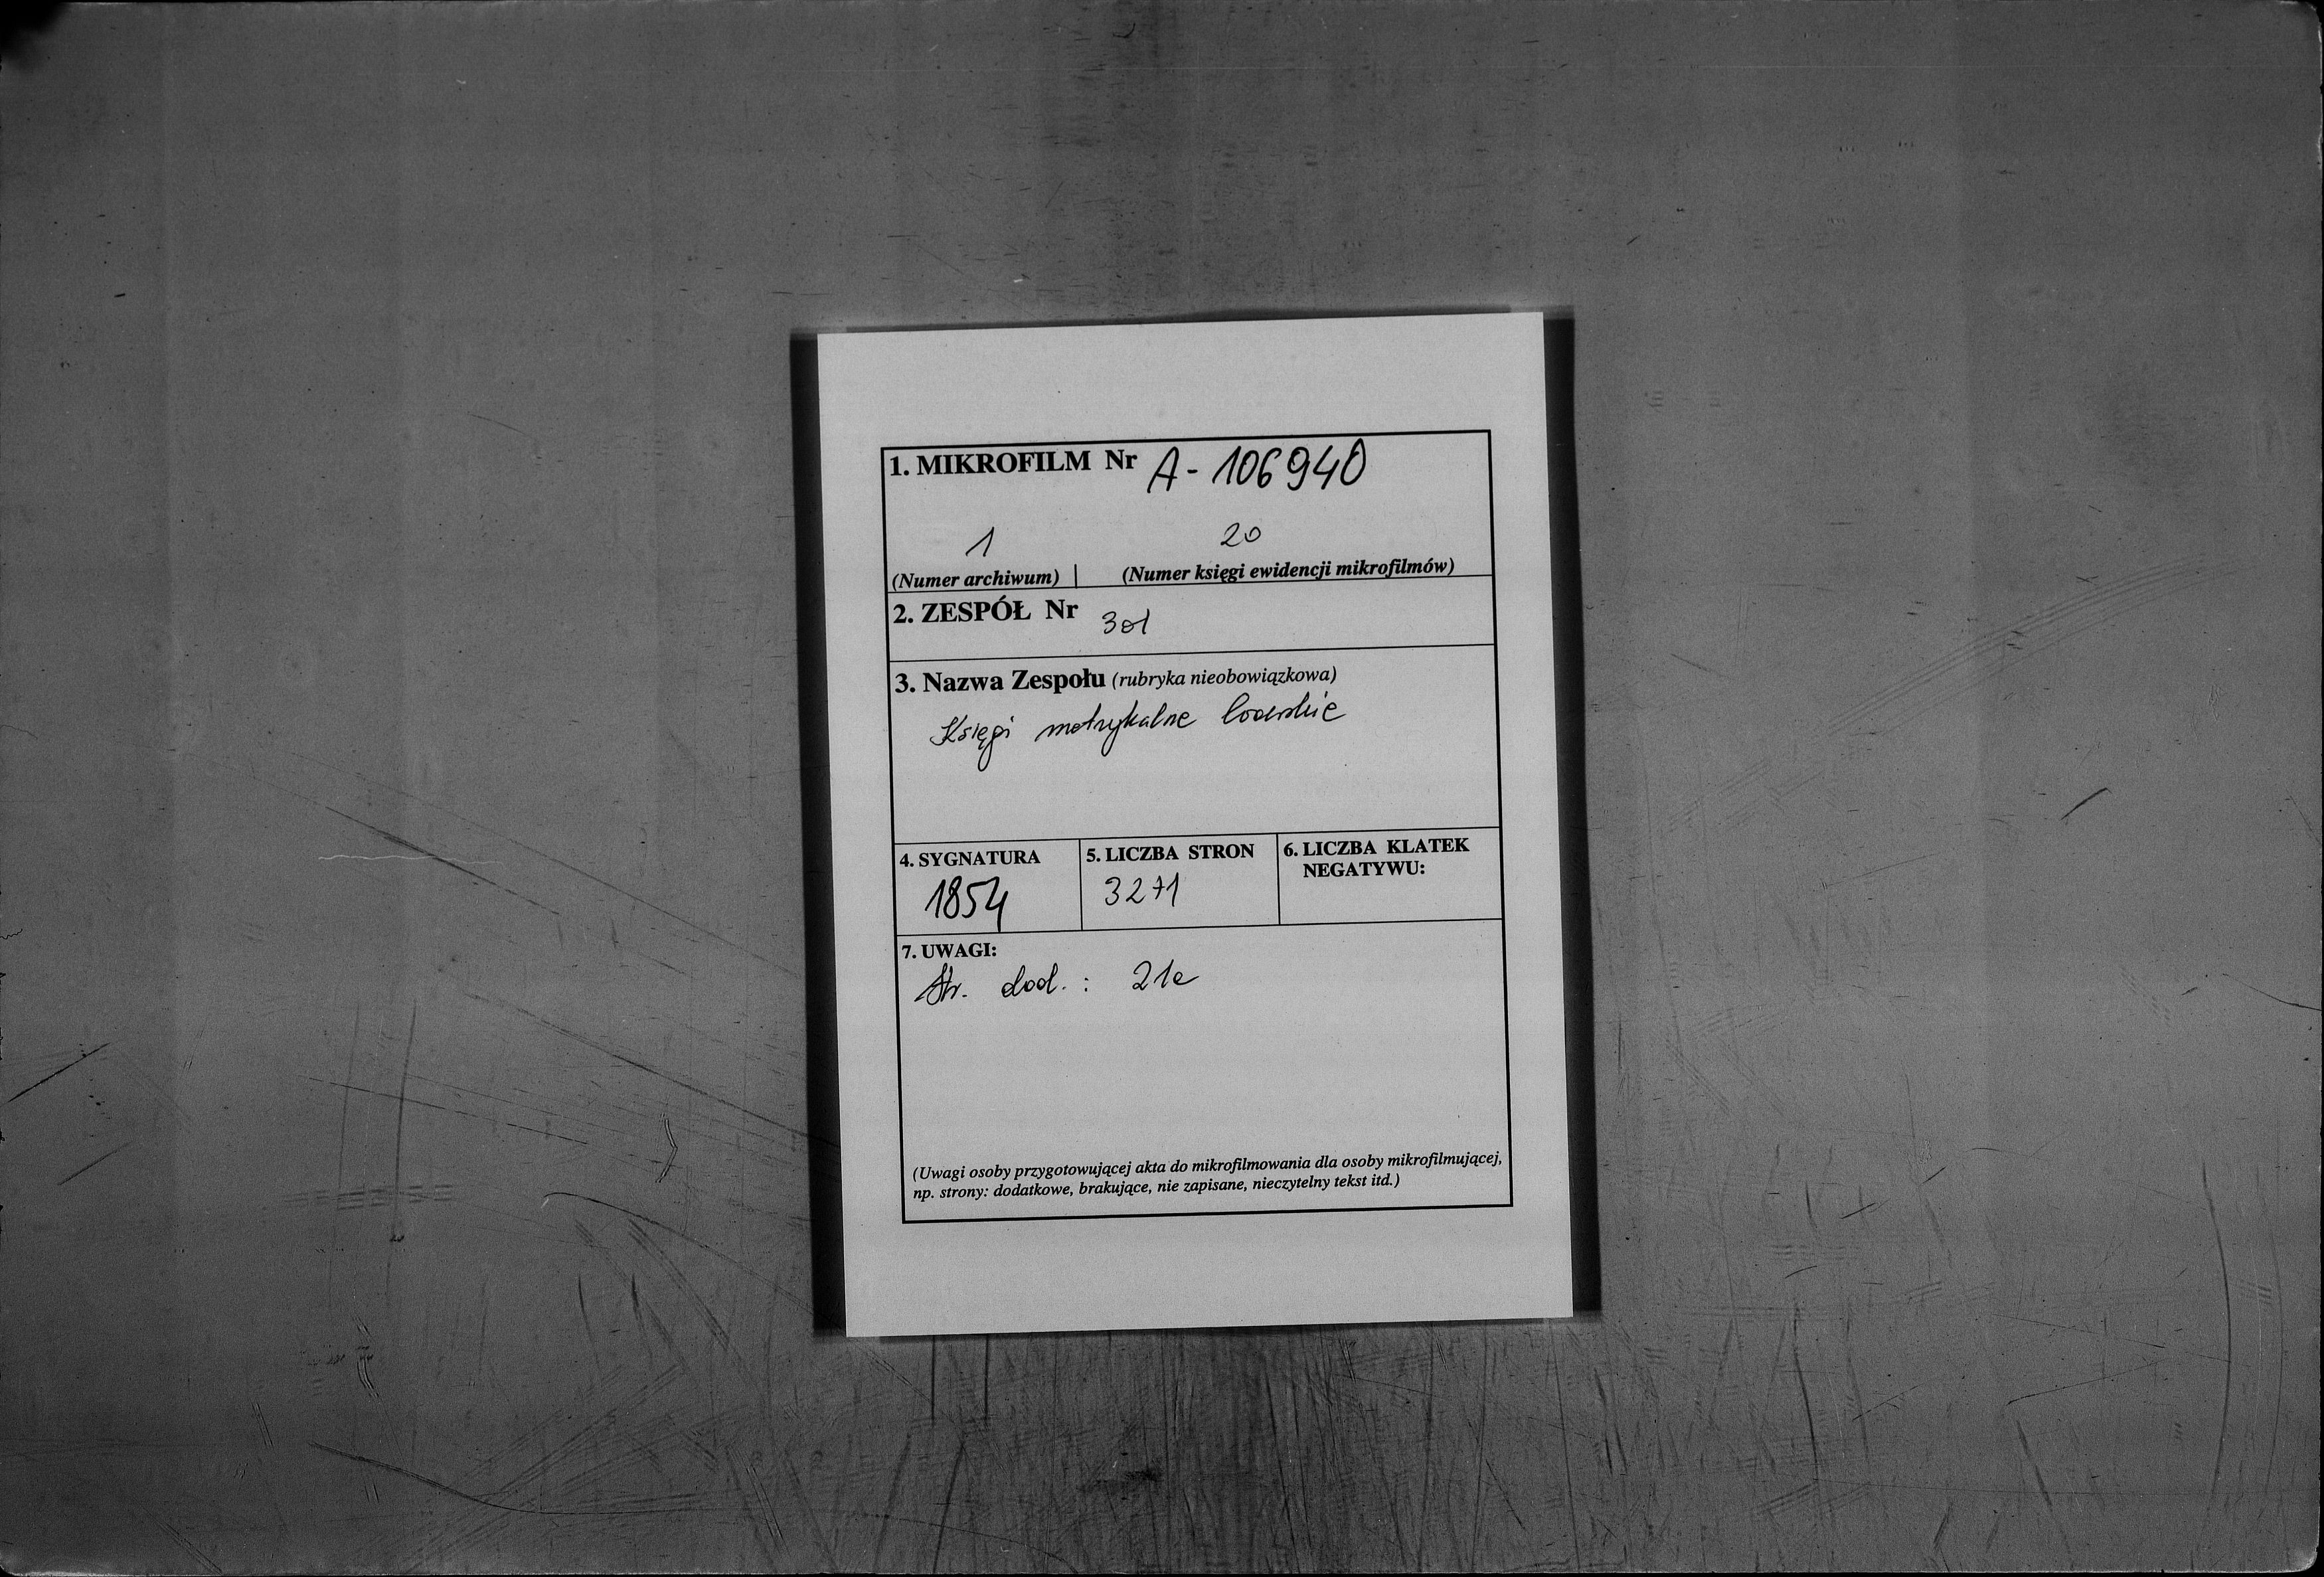 1. MIKROFILM Nr A-106940
1 20
(Numer archiwum) | (Numer księgi ewidencji mikrofilmów)
2. ZESPÓŁ Nr 301
3. Nazwa Zespołu (rubryka nieobowiązkowa)
Księgi metrykalne
4. SYGNATURA 5. LICZBA STRON 6. LICZBA KLATEK
NEGATYWU:
1854 3271
7. UWAGI:
Str. dod.:
(Uwagi osoby przygotowującej akta do mikrofilmowania dla osoby mikrofilmującej,
np. strony: dodatkowe, brakujące, nie zapisane, nieczytelny tekst itd.)